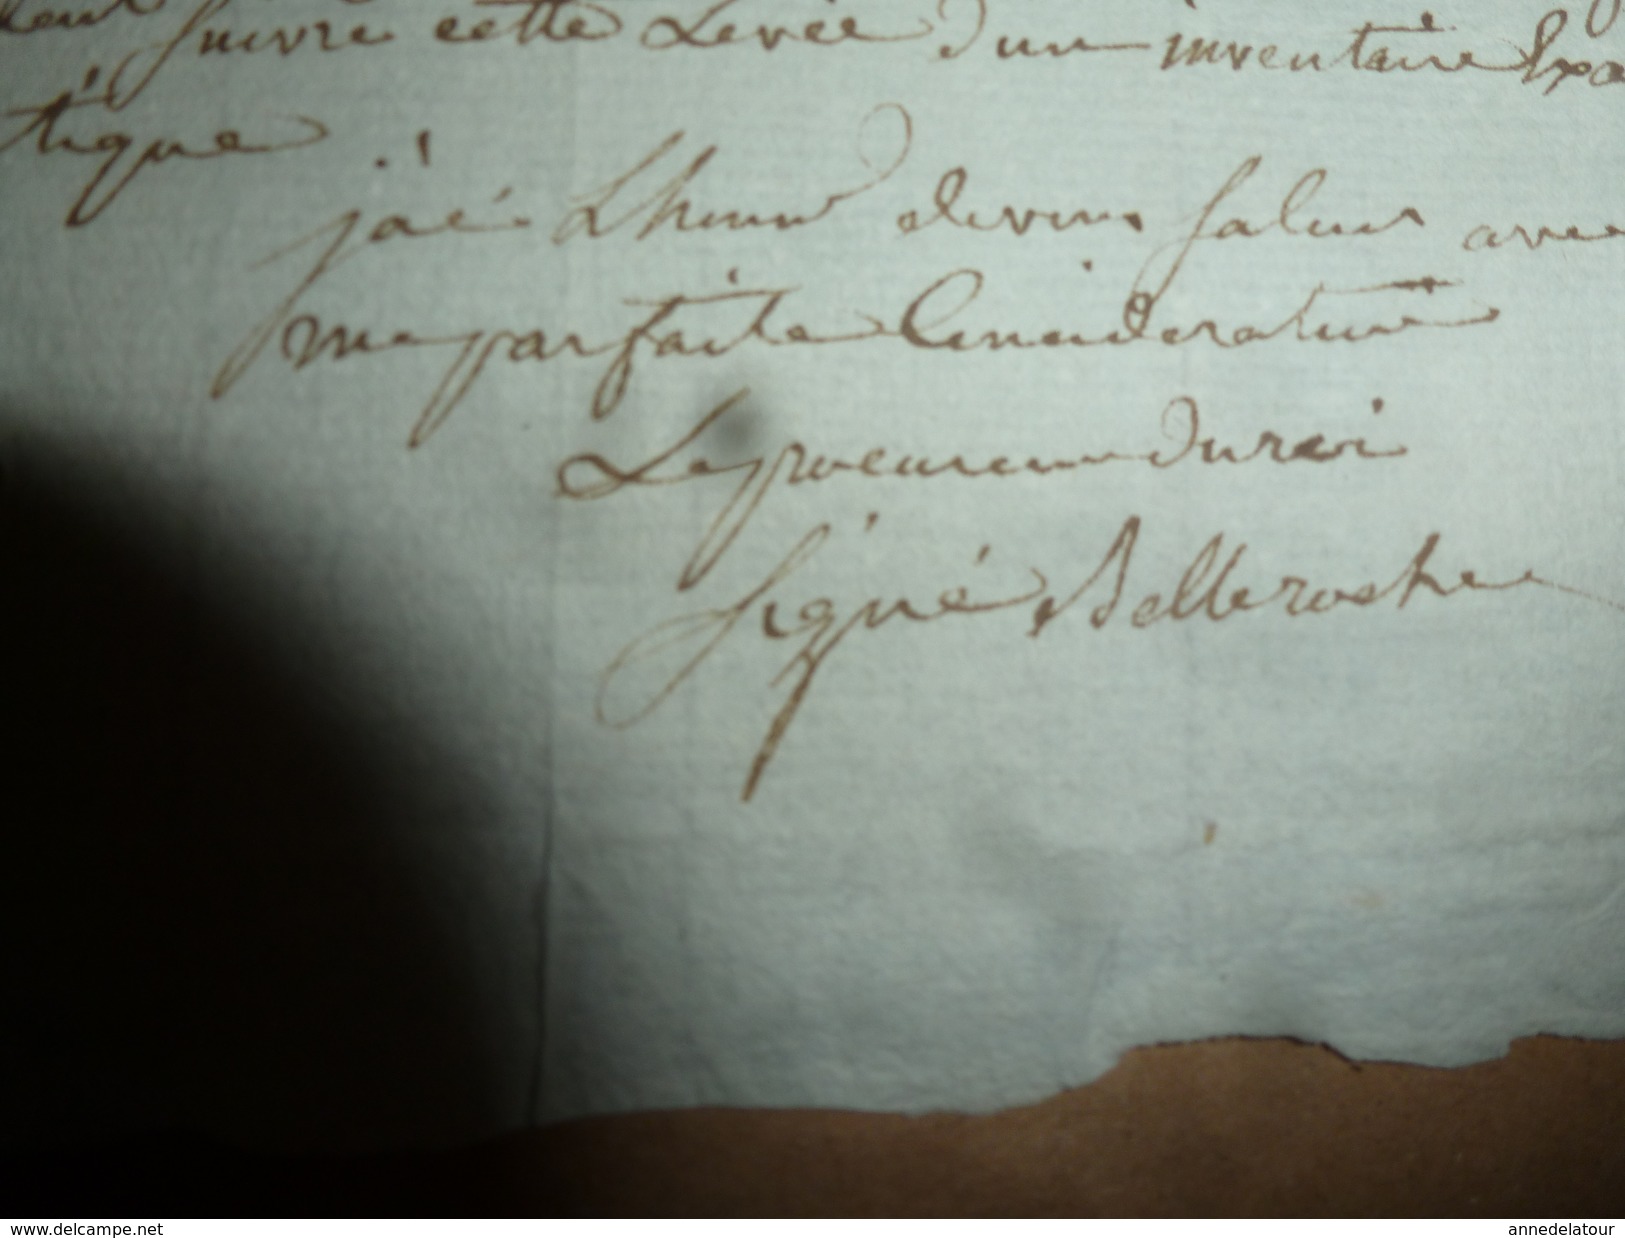 suivre cette Levée d'un inventaire Exa
tique
j'ai Lhonneur devous saluer avec
ma parfaite Consideration
Le procureur du roi
Signé Belleroche
www.delcampe.net
annedelatour